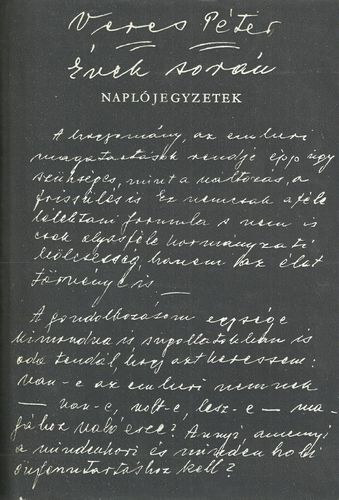 Veres Péter
Évek során
NAPLÓJEGYZETEK
A hagyomány, az emberi
magatartások rendje épp úgy
szükséges, mint a változás, a
frissülés is. Ez nemcsak afféle
lélektani formula s nem is
csak olyasféle kormányzati
bölcsesség, hanem az élet
törvénye is —
A gondolkozásom egysége
kimondva is sugallatokban is
oda tendál, hogy azt keressem:
van-e az emberi nemnek
— van-e, volt-e, lesz-e — ma-
gához való esze? Annyi, amennyi
a mindenkori és mindenholi
önfenntartáshoz kell?